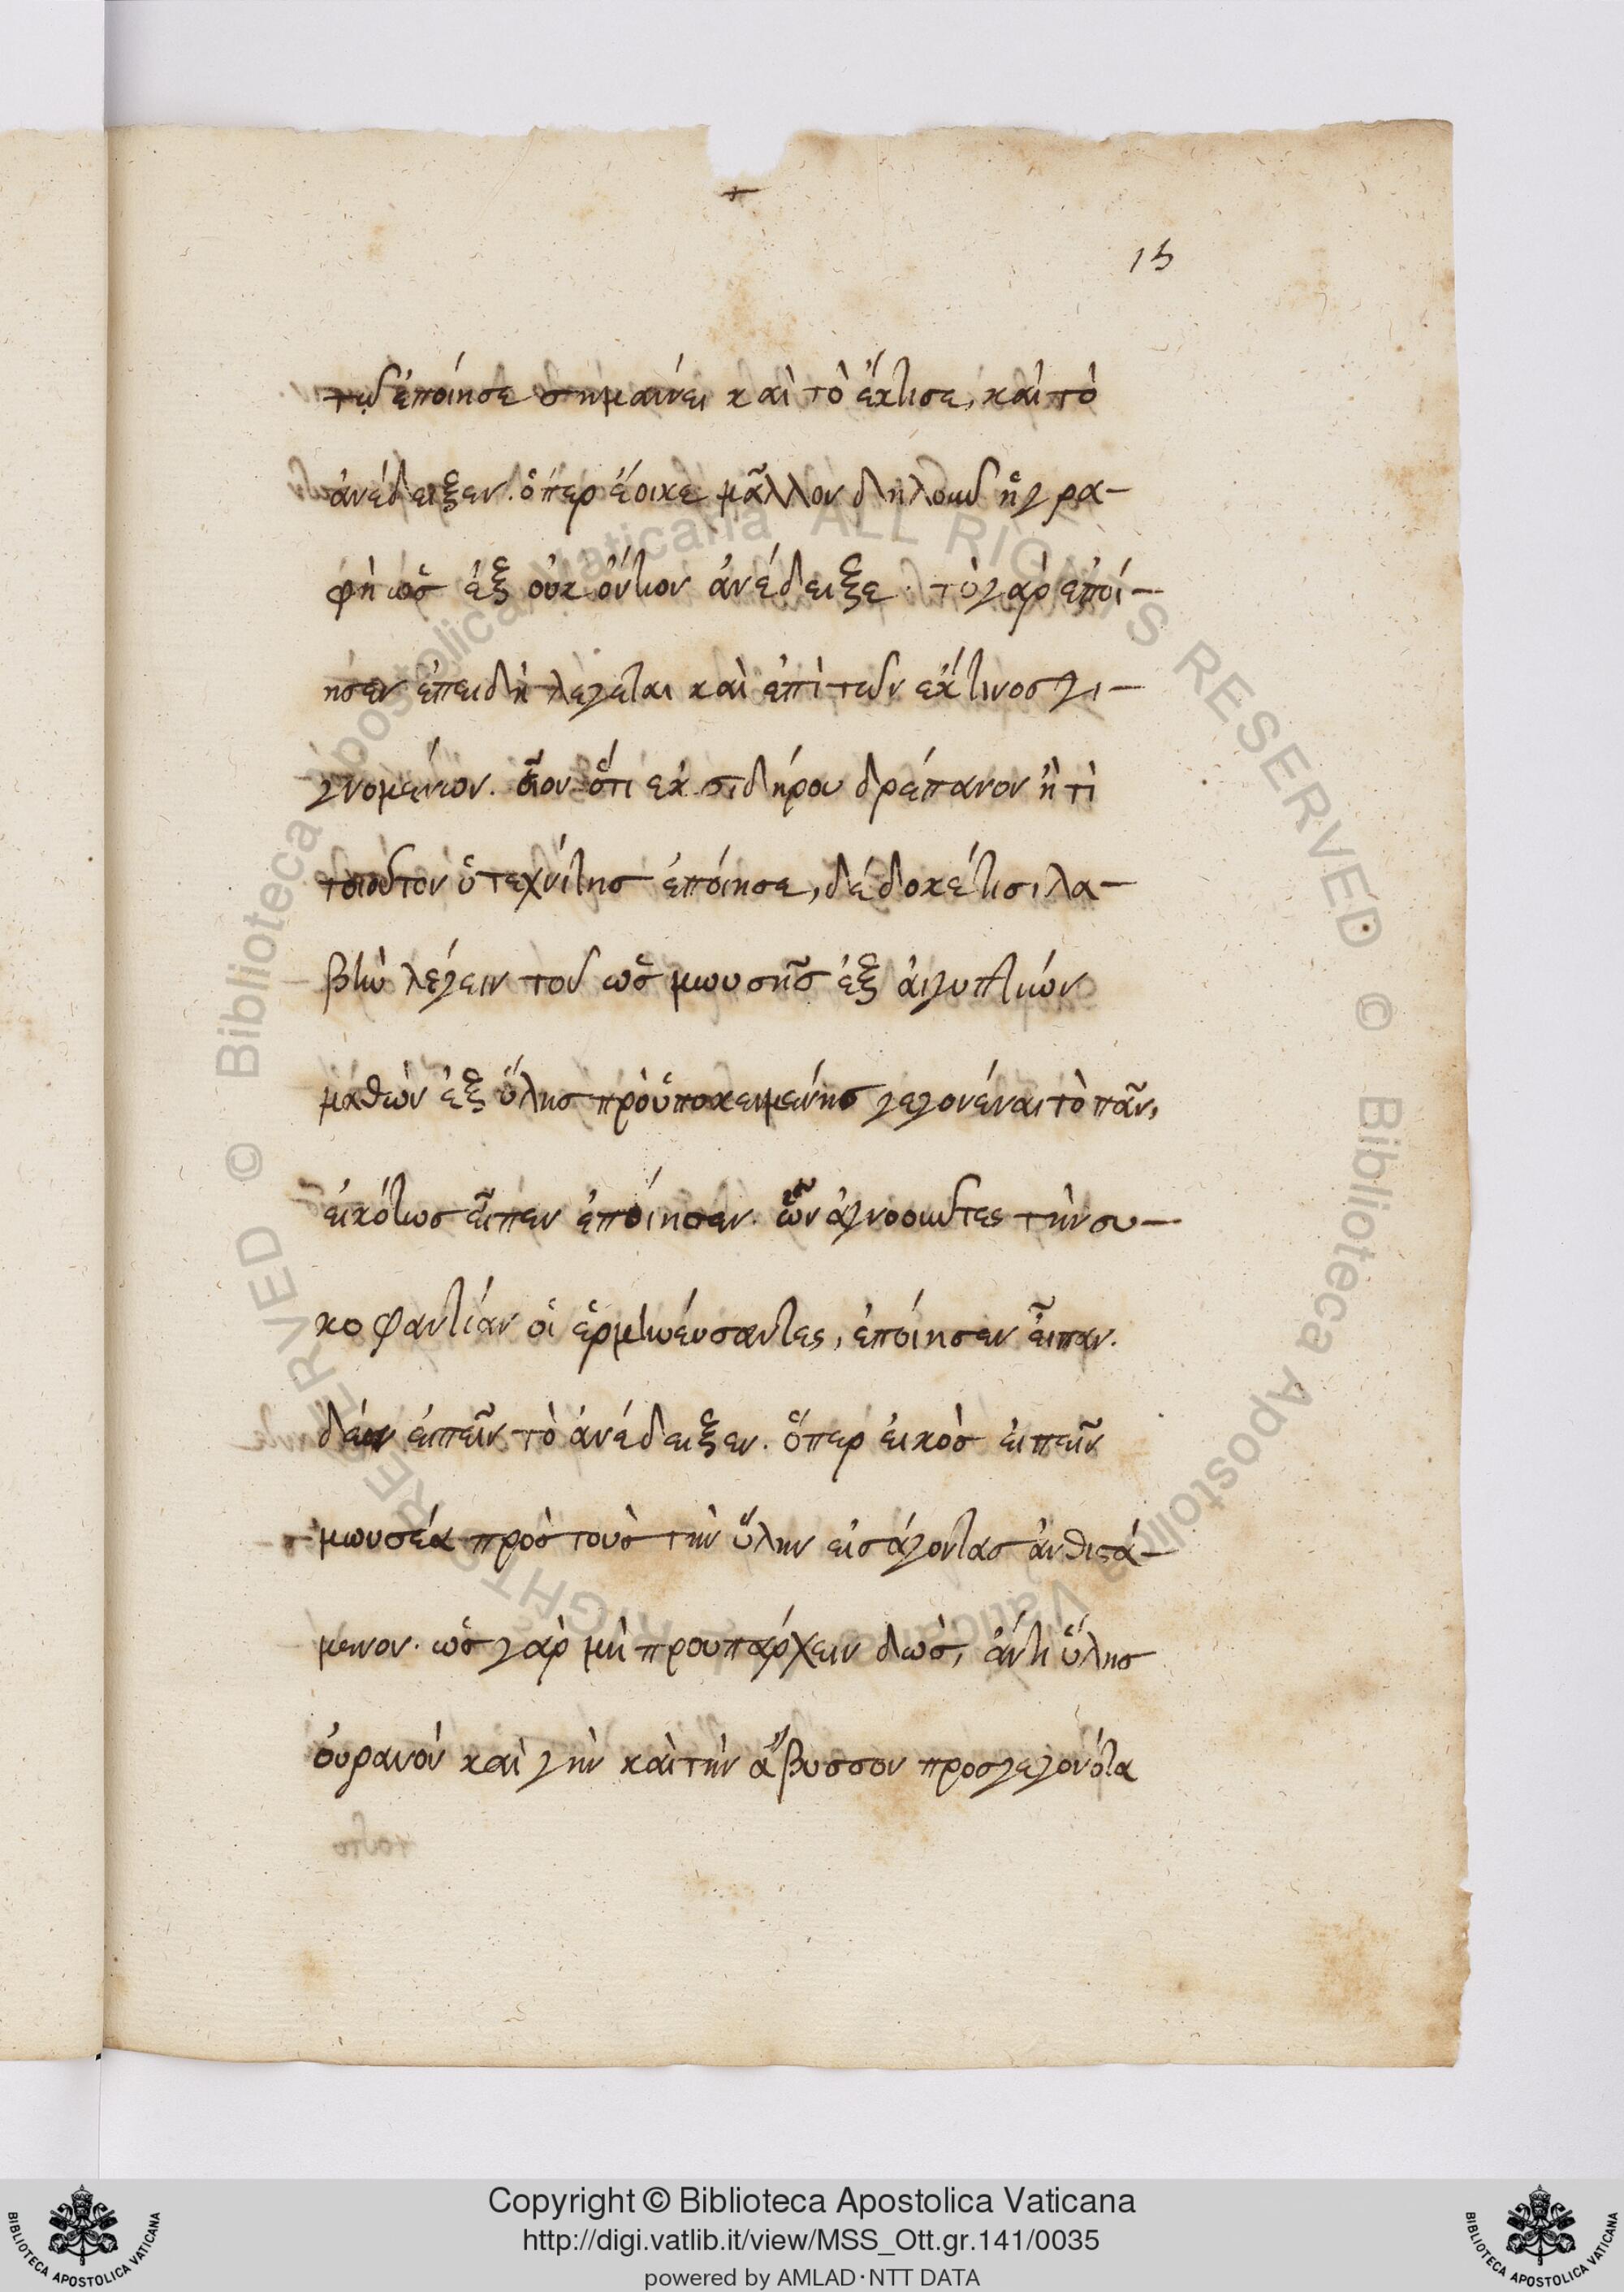 15
τῷ ἐποίησε σημαίνει καὶ τὸ ἔκτισε, καὶ τὸ
ἀνέδειξεν. ὅπερ ἔοικε μᾶλλον δηλοῦν ἡ γρα-
φὴ ὡς ἐξ οὐκ ὄντων ἀνέδειξε. τὸ γὰρ ἐποί-
ησεν ἐπειδὴ λέγεται καὶ ἐπὶ τῶν ἔκ τινος γι-
γνομένων. οἷον ὅτι ἐκ σιδήρου δρέπανον ἤ τι
τοιοῦτον ὁ τεχνίτης ἐποίησε, δέδοκέ τισι λα-
βὴν λέγειν τοῦ ὡς μωυσῆς ἐξ αἰγυπτίων
μαθὼν ἐξ ὕλης προϋποκειμένης γεγονέναι τὸ πᾶν,
εἰκότως εἶπεν ἐποίησεν. ὧν ἀγνοοῦντες τὴν συ-
κοφαντίαν οἱ ἑρμηνεύσαντες, ἐποίησεν εἶπαν.
δέον εἰπεῖν τὸ ἀνέδειξεν. ὅπερ εἰκὸς εἰπεῖν
μωυσέα πρὸς τοὺς τὴν ὕλην εἰσάγοντας ἀνθιστά-
μενον. ὡς γὰρ μὴ προυπάρχειν διδούς, ἀντὶ ὕλης
οὐρανὸν καὶ γῆν καὶ τὴν ἄβυσσον προσγεγονότα
Copyright © Biblioteca Apostolica Vaticana
http://digi.vatlib.it/view/MSS_Ott.gr.141/0035
powered by AMLAD·NTT DATA
BIBLIOTECA APOSTOLICA VATICANA
BIBLIOTECA APOSTOLICA VATICANA
© Biblioteca Apostolica Vaticana ALL RIGHTS RESERVED © Biblioteca Apostolica Vaticana ALL RIGHTS RESERVED